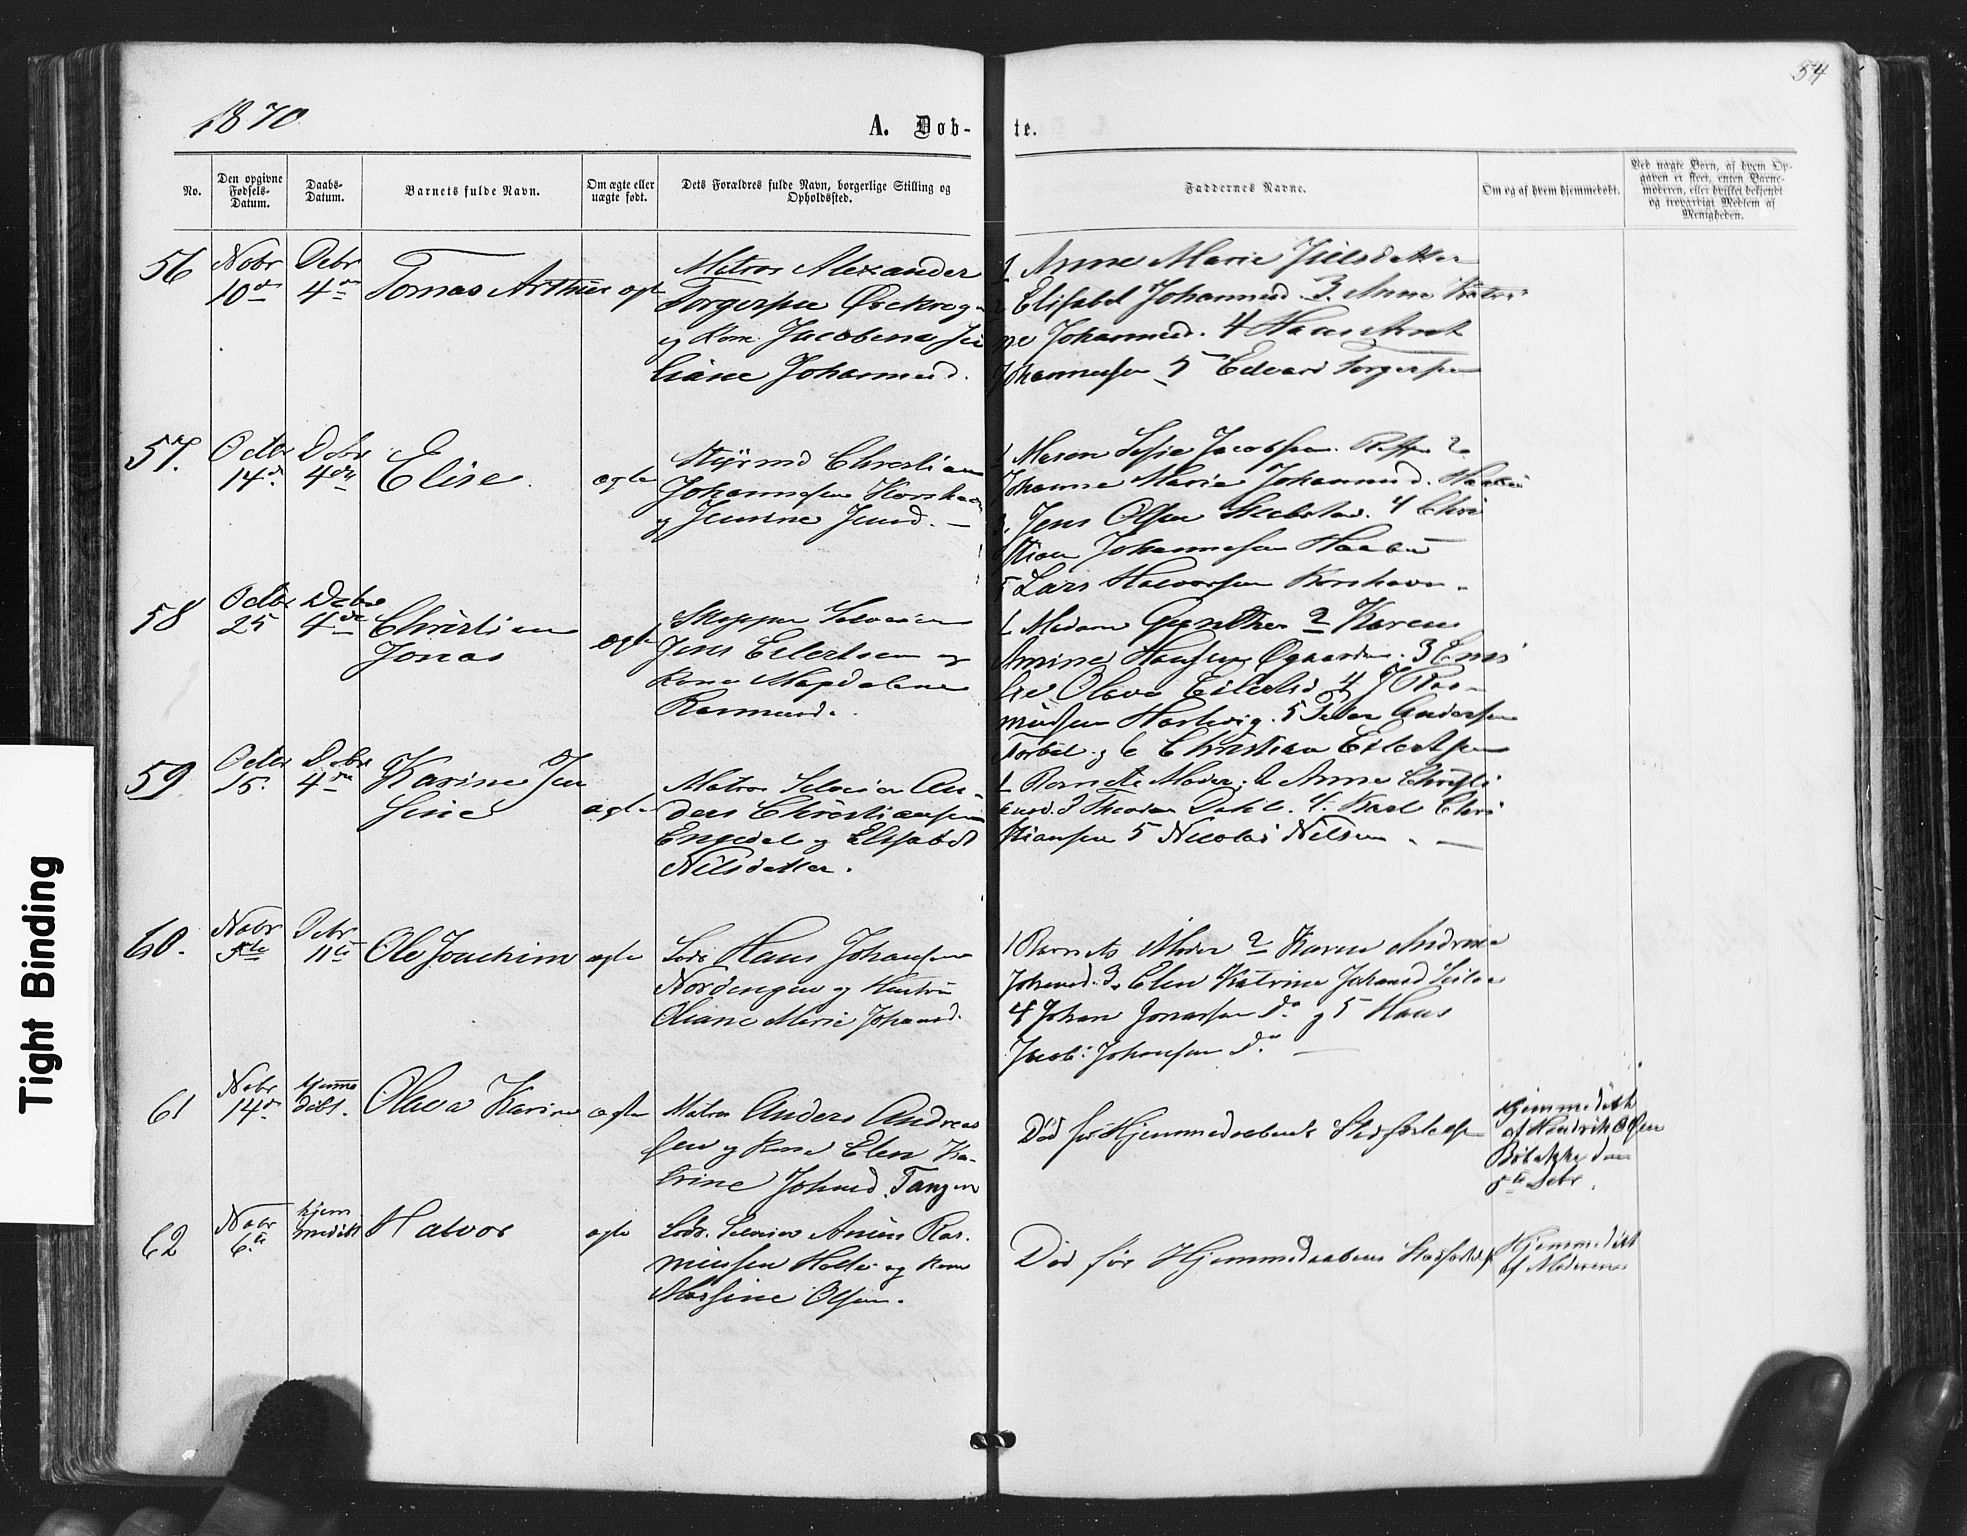 54
1870
A. Døb-
te.
No.
Den opgivne Fødsels-Datum.
Daabs-Datum.
Barnets fulde Navn.
Om ægte eller uægte født.
Dets Forældres fulde Navn, borgerlige Stilling og Opholdssted.
Faddernes Navne.
Om og af hvem hjemmedøbt.
Ved uægte Børn, af hvem Op-
gaven er skeet, enten Barne-
moderen, eller hvilket bekjendt
og troværdigt Medlem af
Menigheden.
56
Nobr 10de
Debr 4de
Tomas Arthur
ægte
Matros Alexander
Torgersen
og Kone Jacobena
Johannesd.
1 Anne Marie Nielsdatter
2 Elisabet Johannesd. 3. Anne Katri
ne Johannesd. 4 Hans
Johannesen 5 Edvard Torgersen
57.
Octbr 14d.
Debr 4de
Elise
ægte
Styrmd Christian
Johannesen Korshavn
og Jensine Jensd. —
1 Maren Sofie Jacobsen. 2
Johanne Marie Johannesd.
3. Jens Olsen 4 Chri
stian Johannesen
5 Lars Halvorsen Korshavn.
58
Octbr 25
Debr 4de
Christian
Jonas
ægte
Skipper Selveier
Jens Eilertsen og
Kone Magdalene
Rasmusd.
1 Madam Gunther 2 Karen
Amine Hansen Øgaarden. 3
Olava Eilertsd 4 J Ras-
mussen Hartvig. 5 Peter Andersen
og 6 Christian Eilertsen
59
Octbr 15.
Debr 4de
Karine Jen
sine
ægte
Matros Selveier An-
ders Christiansen
Engedal og Elisabet
Nilsdatter.
1 Barnets Moder. 2 Anne Christi
ansd. 3 Theodor Dahl. 4. Karl Chri
stiansen 5 Nicolai Nilsen. —
60.
Nobr 5te
Debr 11te
Ole Joachim
ægte
Lods Hans Johansen
Nordengen og Hustru
Oliane Marie Johansd.
1 Barnets Moder 2 Karen Andrea
Johansd. 3. Elen Katrine Johansd
4 Johan Jonassen Do. og 5 Hans
Jacob Johansen Do. —
61
Nobr 14de
hjemme
døbt.
Olava Karine
ægte
Matros Anders Andreas
sen og Kone Elen Ka-
trine Johansd. Tangen
Død før Hjemmedaabens Stadfæstelse
Hjemmedøbt
af Hendrik Olsen
Bøbakke den
5te Debr.
62
Nobr 6te
hjem
medøbt
Halvor
ægte
Lods. Selveier Anius Ras-
mussen Holte og Kone
Massine Olsen.
Død før Hjemmedaabens Stadfæstelse
Hjemmedøbt
af Moderen
Tight Binding